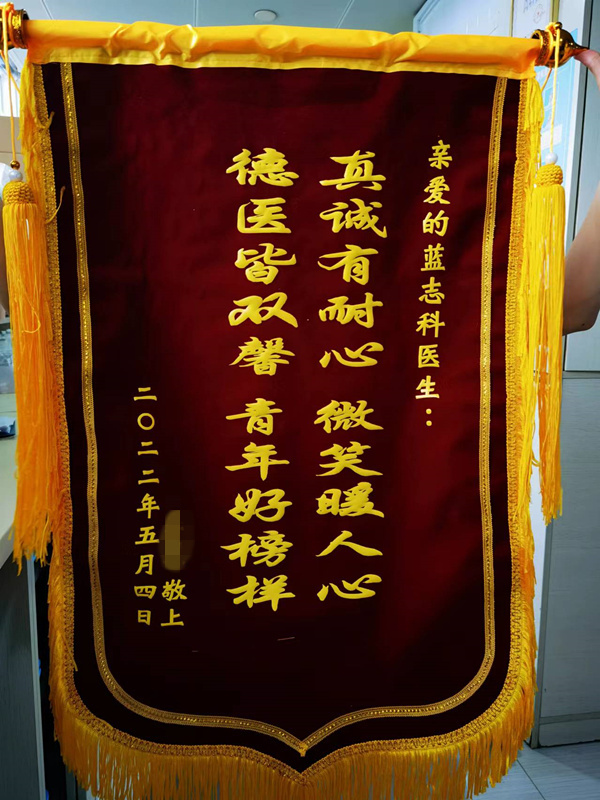 亲爱的蓝志科医生：
真诚有耐心 微笑暖人心
德医皆双馨 青年好榜样
敬上
二〇二二年五月四日